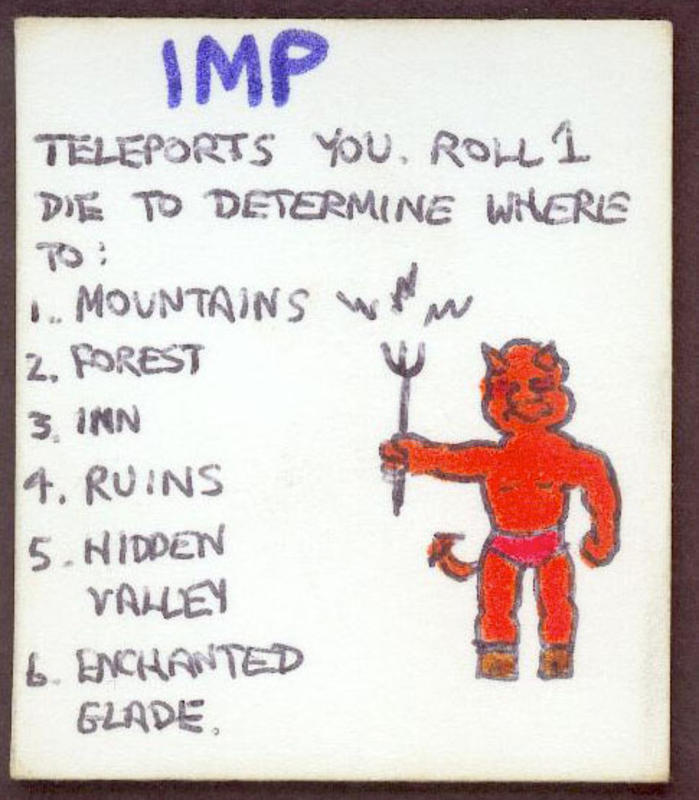 IMP
TELEPORTS YOU. ROLL 1
DIE TO DETERMINE WHERE
TO:
1. MOUNTAINS
2. FOREST
3. INN
4. RUINS
5. HIDDEN
VALLEY
6. ENCHANTED
GLADE.